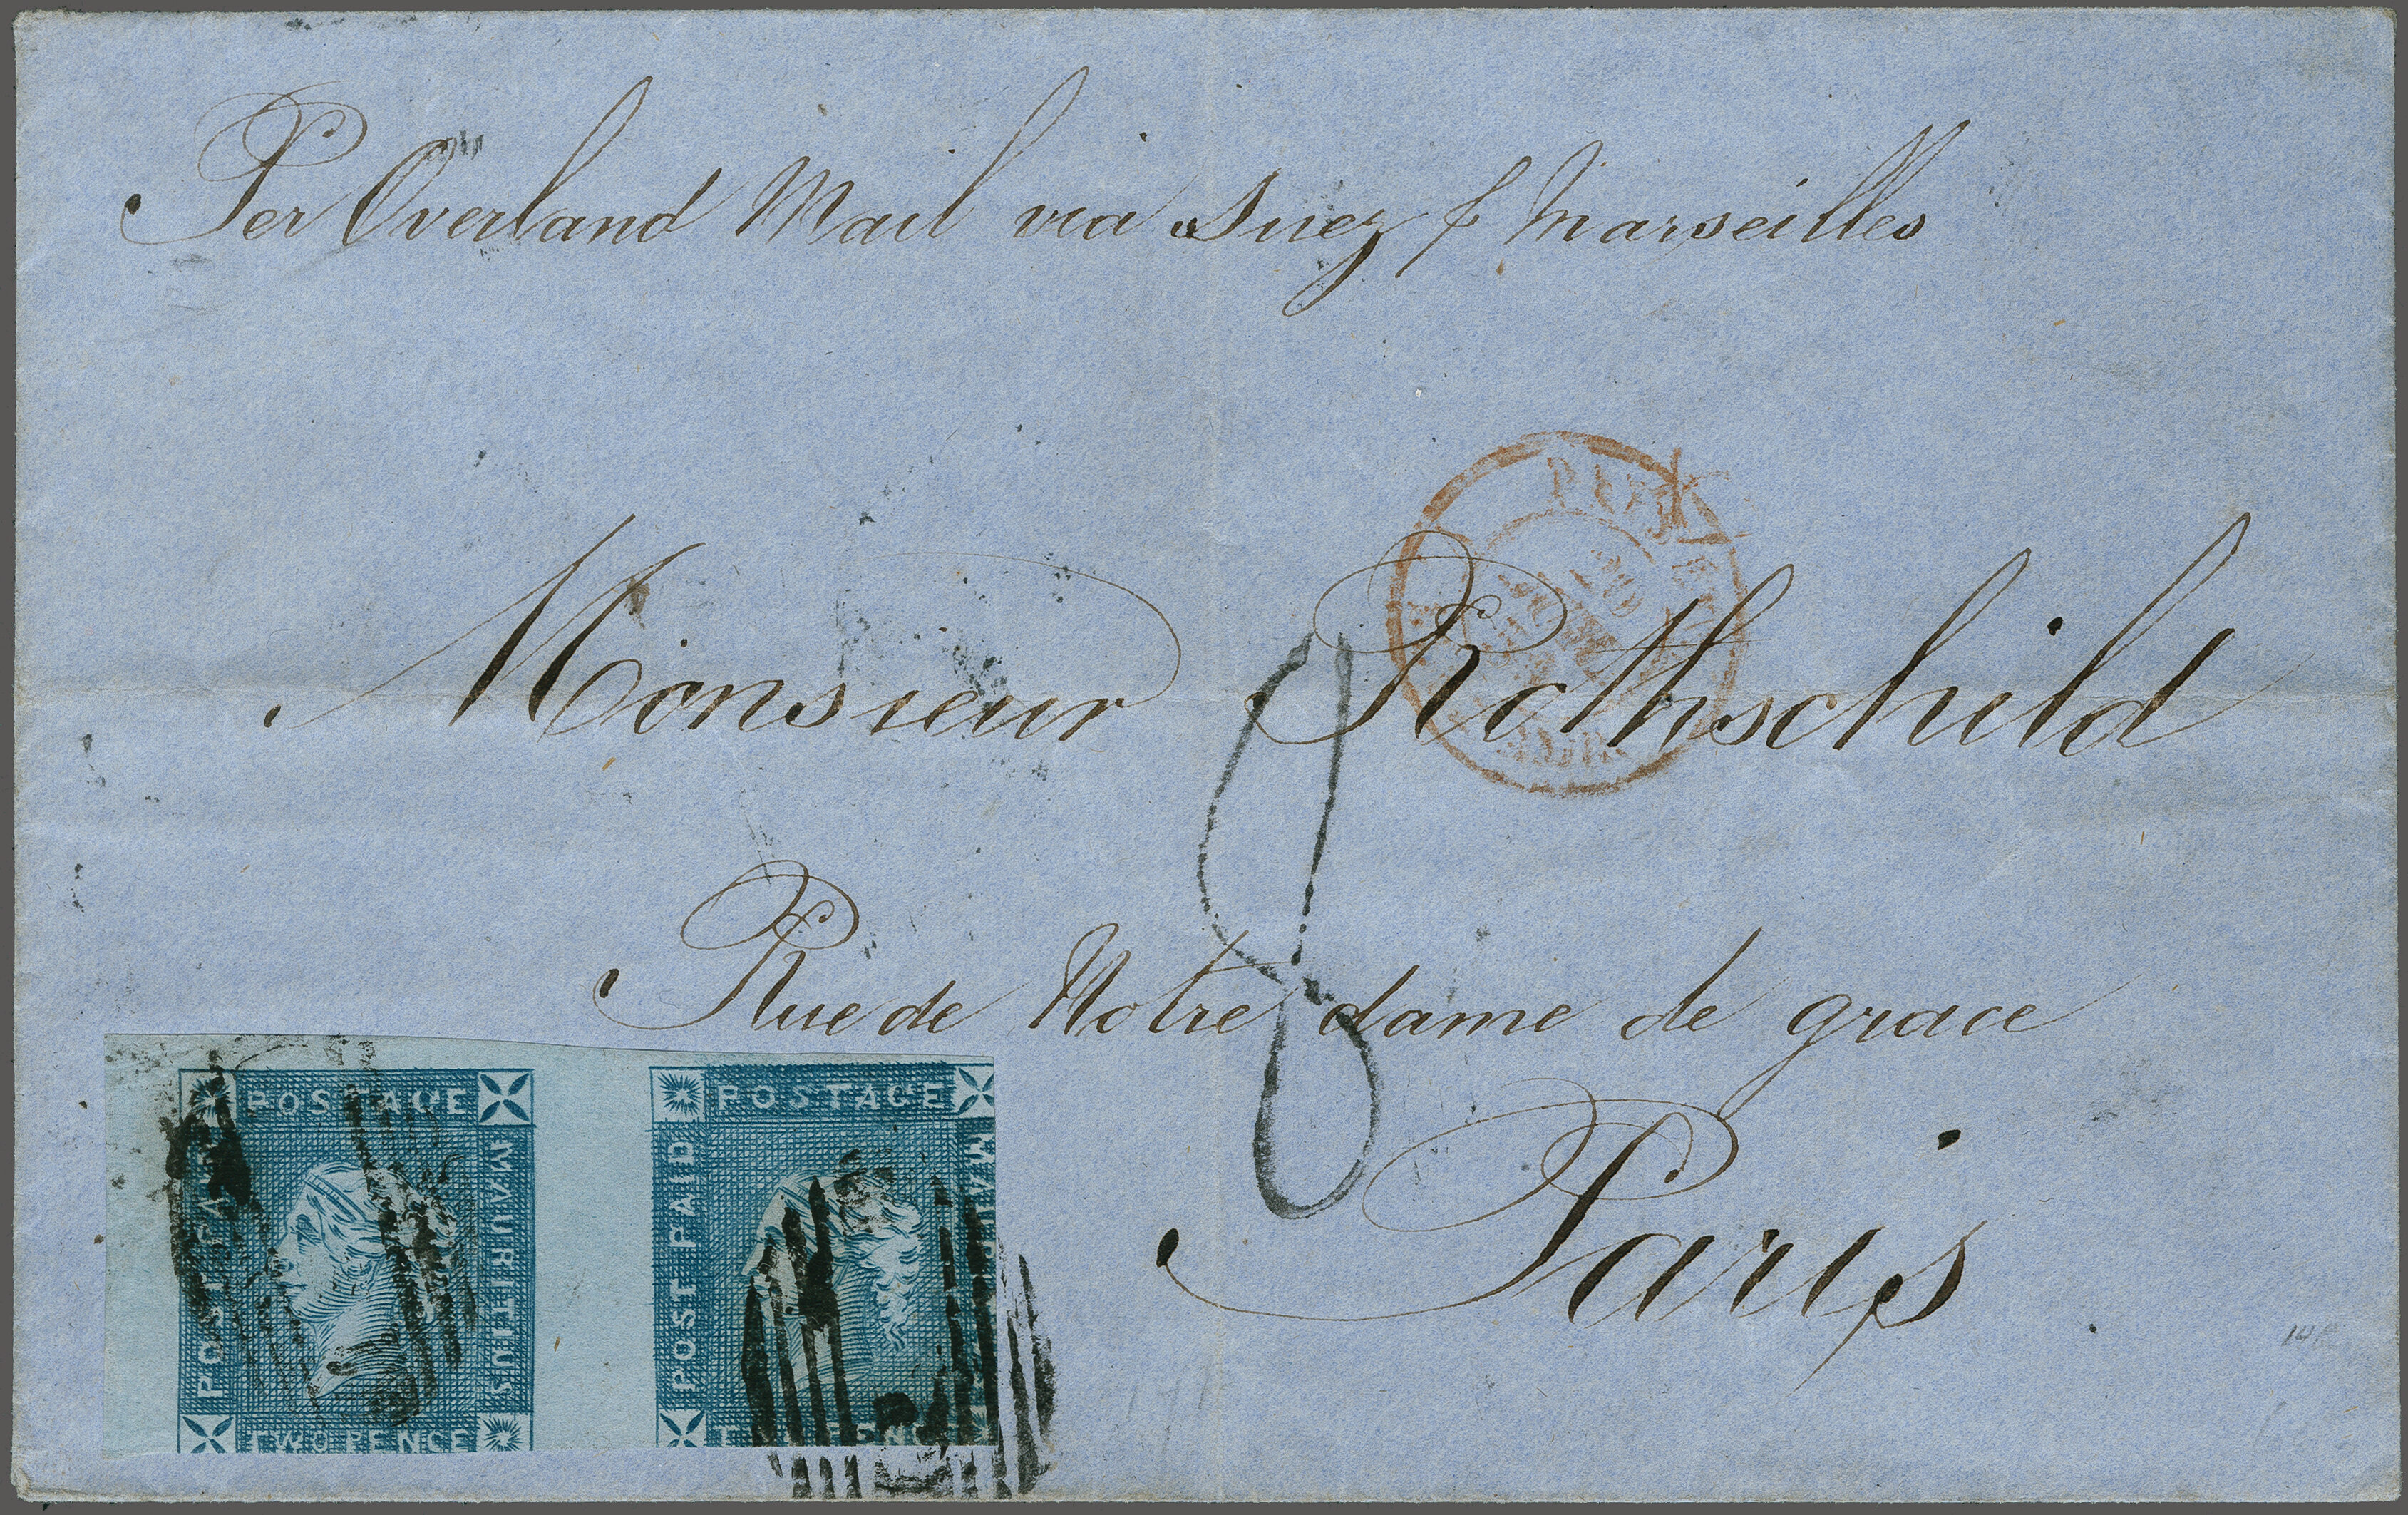 Per Overland Mail via Suez & Marseilles
Monsieur Rothschild
8
Rue de Notre dame de grace
Paris
POSTAGE
POST PAID
MAURITIUS
TWO PENCE
POSTAGE
POST PAID